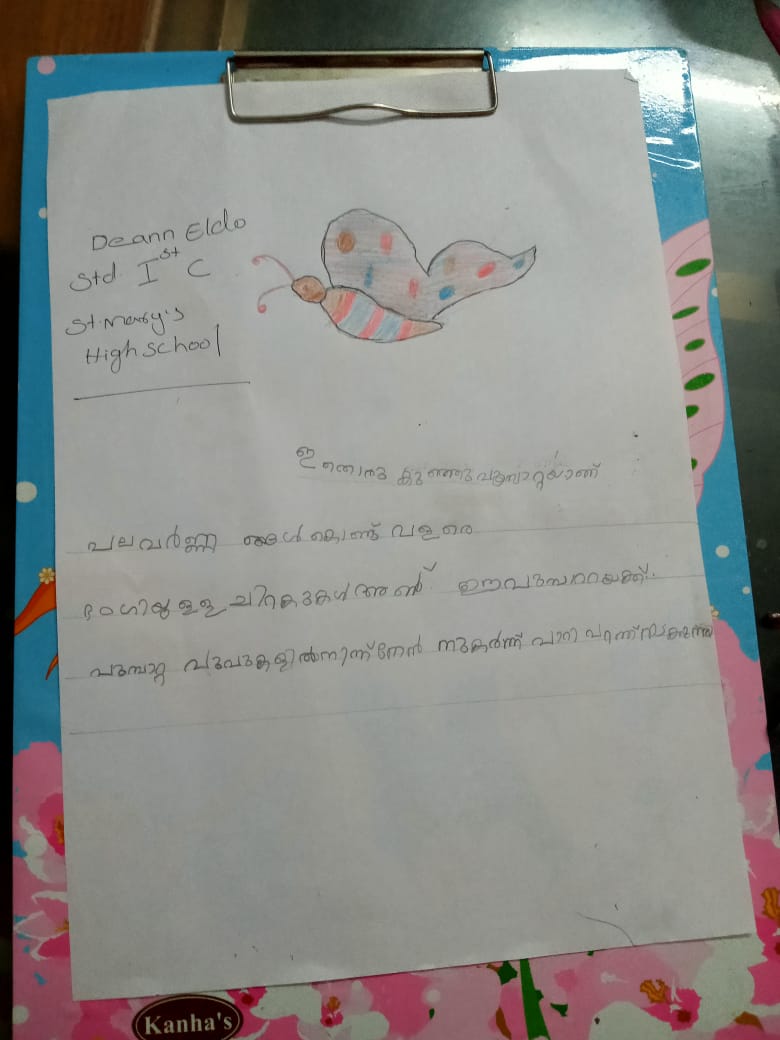 Deann Eldo
Std I st C
St. Mary's
High school
ഇതൊരു കുഞ്ഞുപൂമ്പാറ്റയാണ്
പലവർണ്ണ ങ്ങൾകൊണ്ട് വളരെ
ഭംഗിയുള്ള ചിറകുകൾ അണ് ഈപൂമ്പാറ്റയക്ക്.
പൂമ്പാറ്റ പൂവുകളിൽനിന്ന് തേൻ നുകർന്ന് പാറി പറന്ന് നടക്കുന്നു
Kanha's